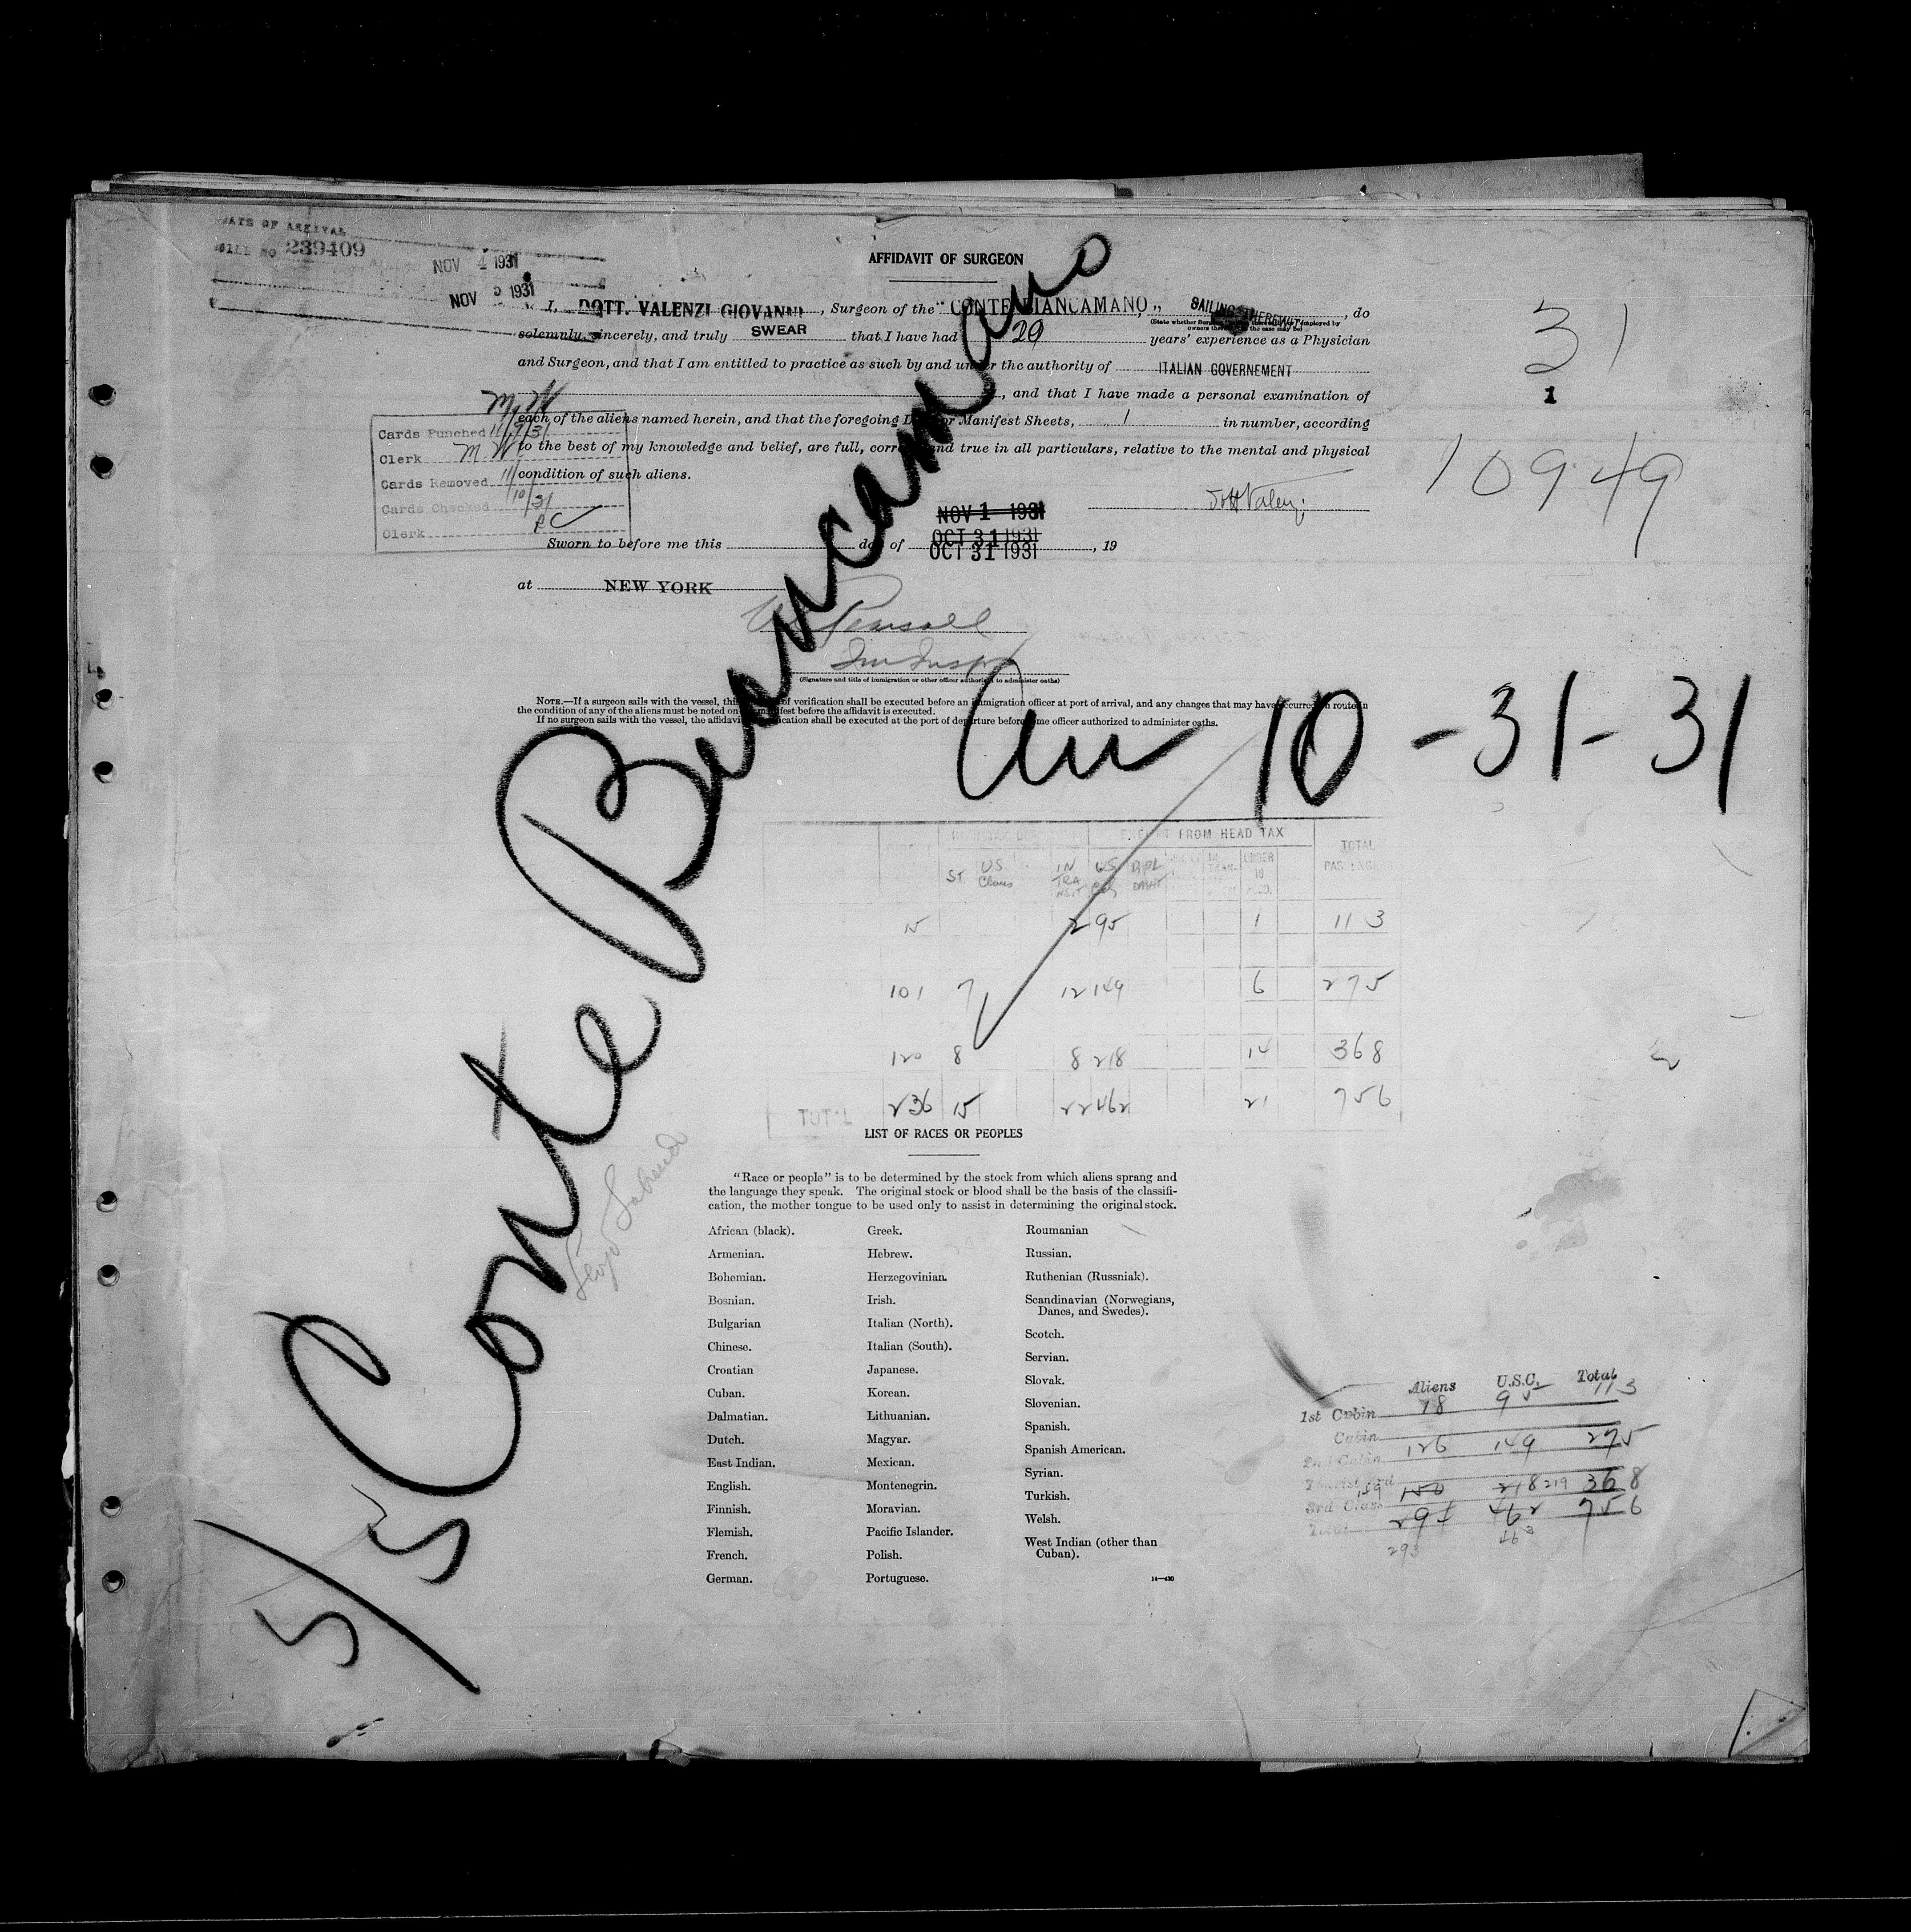 DATE OF ARRIVAL
BILL NO 239409
NOV 4 1931
NOV 5 1931
AFFIDAVIT OF SURGEON
I, DOTT. VALENZI GIOVANNI, Surgeon of the "CONTE BIANCAMANO," SAILING THEREWITH, do
(State whether Surgeon sailing therewith, or employed by owners thereof, as the case may be)
solemnly, sincerely, and truly SWEAR that I have had 29 years' experience as a Physician
and Surgeon, and that I am entitled to practice as such by and under the authority of ITALIAN GOVERNEMENT
, and that I have made a personal examination of
each of the aliens named herein, and that the foregoing List or Manifest Sheets, 1 in number, according
to the best of my knowledge and belief, are full, correct, and true in all particulars, relative to the mental and physical
condition of such aliens.
Cards Punched 11/9/31
Clerk M.W.
Cards Removed 11/10/31
Cards Checked
Clerk PC
31
1
10949
NOV 1 1931
OCT 31 1931
Sworn to before me this day of OCT 31 1931, 19
at NEW YORK
(Signature and title of immigration or other officer authorized to administer oaths)
NOTE.—If a surgeon sails with the vessel, this of verification shall be executed before an immigration officer at port of arrival, and any changes that may have occurred en route in
the condition of any of the aliens must be noted on manifest before the affidavit is executed.
If no surgeon sails with the vessel, the affidavit verification shall be executed at the port of departure before some officer authorized to administer oaths.
S/S Conte Biancamano
Arr 10-31-31
EXEMPT FROM HEAD TAX
TOTAL PASSENGERS
ST US Class IN TRANSIT US DIPLOMAT UNDER 16
15 2 95 1 113
101 7 12 149 6 275
120 8 8 218 14 368
TOTAL 236 15 22 462 21 756
LIST OF RACES OR PEOPLES
"Race or people" is to be determined by the stock from which aliens sprang and
the language they speak. The original stock or blood shall be the basis of the classifi-
cation, the mother tongue to be used only to assist in determining the original stock.
African (black).
Armenian.
Bohemian.
Bosnian.
Bulgarian
Chinese.
Croatian
Cuban.
Dalmatian.
Dutch.
East Indian.
English.
Finnish.
Flemish.
French.
German.
Greek.
Hebrew.
Herzegovinian.
Irish.
Italian (North).
Italian (South).
Japanese.
Korean.
Lithuanian.
Magyar.
Mexican.
Montenegrin.
Moravian.
Pacific Islander.
Polish.
Portuguese.
Roumanian
Russian.
Ruthenian (Russniak).
Scandinavian (Norwegians,
Danes, and Swedes).
Scotch.
Servian.
Slovak.
Slovenian.
Spanish.
Spanish American.
Syrian.
Turkish.
Welsh.
West Indian (other than
Cuban).
Aliens U.S.C. Total
1st Cabin 18 95 113
Cabin
2nd Cabin 126 149 275
Tourist 3rd
3rd Class 149 150 218 219 368
Total 294 462 756
293 463